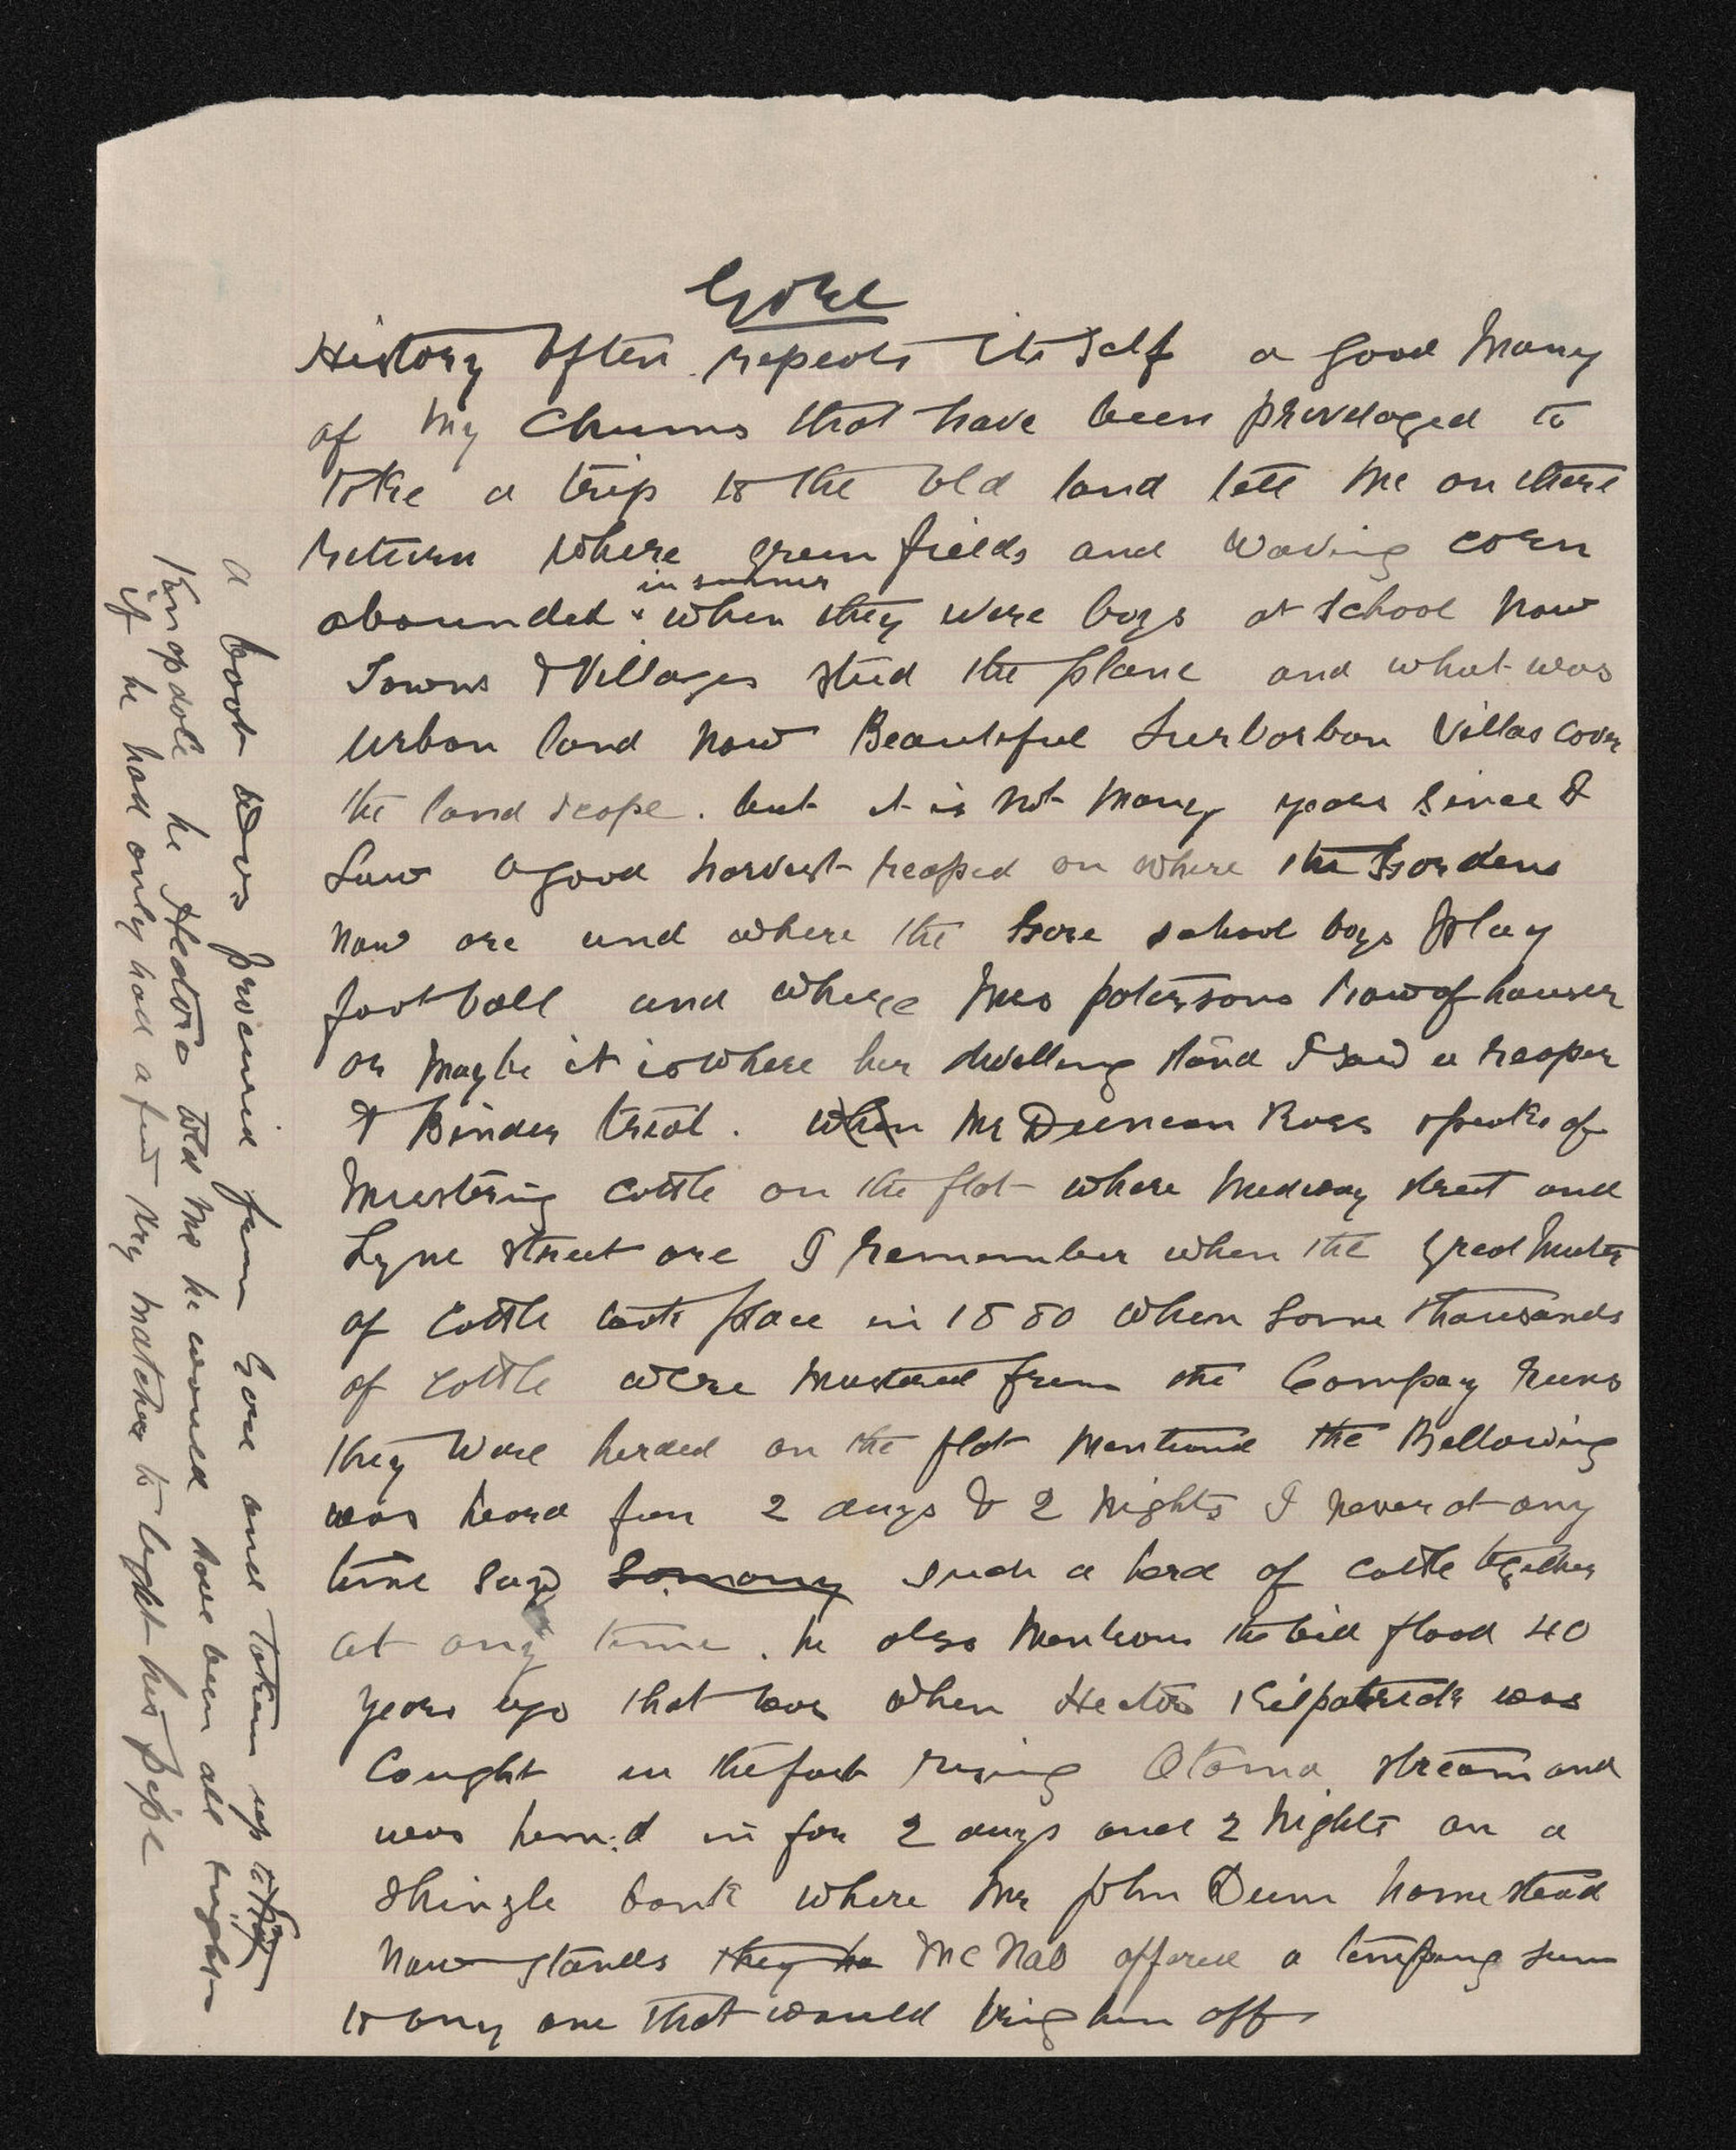 Gore
History often repeats its self a good many
of my Chums that have been priveloged to
take a trip to the old land tell me on there
return where green fields and waving corn
in summer
abounded when they were boys at school now
Towns & Villages stud the plane and what was
urban land now Beautiful Surborban Villas cover
the land scape. but it is not many years since I
saw a good harvest reaped on where the Gardens
now are and where the Gore school boys play
foot ball and where Mrs patersons row of houses
or maybe it is where her dwelling stand I saw a reaper
& Binder trial. when Mr Duncan Ross speaks of
Mustering cattle on the flat where Medway street and
Lyne street are I remember when the great Muster
of cattle took place in 1880 when some thousands
of cattle were mustered from the Company runs
they were herded on the flat mentiond the Bellowing
was heard for 2 days & 2 nights I never at any
time saw so many such a herd of cattle together
at any time. he also mentions the big flood 40
years ago that was when Hector Kilpatrick was
caught in the fast rising Otama stream and
was hemed in for 2 days and 2 nights on a
shingle bank where Mr John Dunn home stead
now stands they he McNab offered a temping sum
to any one that would bring him off
a boat was procured from Gore and taken up to
Knapdale he Hector told me he would have been all right
if he had only had a few dry matches to light his pipe